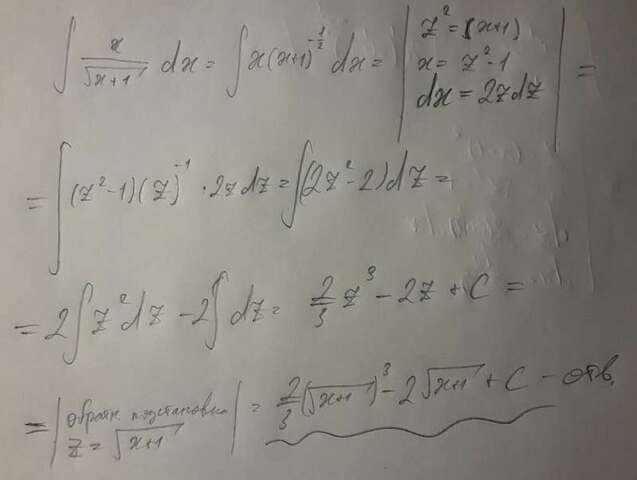 ∫ x/√(x+1) dx = ∫ x(x+1)^(-1/2) dx = | z² = (x+1)
x = z² - 1
dx = 2z dz | =
= ∫ (z² - 1)(z)^(-1) · 2z dz = ∫ (2z² - 2) dz =
= 2 ∫ z² dz - 2 ∫ dz = 2/3 z³ - 2z + C =
= | обратн. подстановка
z = √(x+1) | = 2/3 (√(x+1))³ - 2√(x+1) + C - отв.